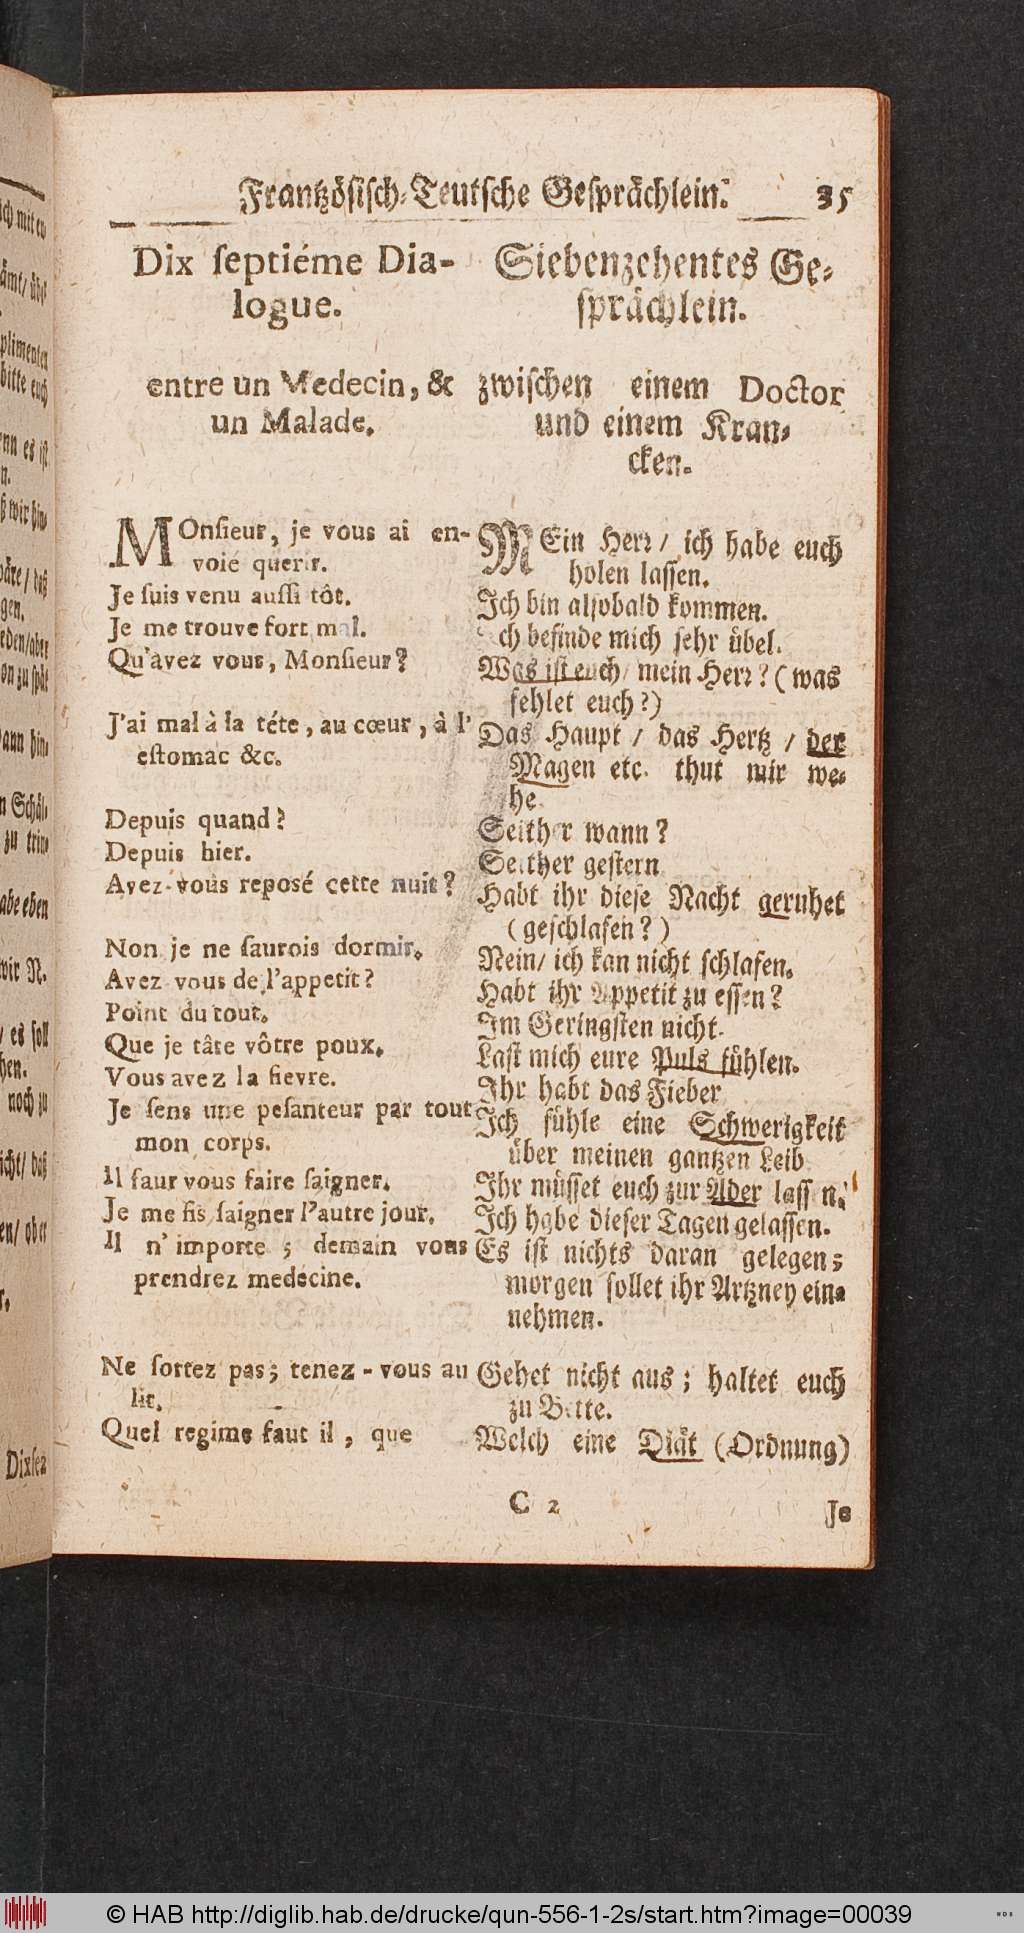 Frantzösisch-Teutsche Gesprächlein. 35
Dix ſeptiéme Dia-
logue.
entre un Medecin, &
un Malade.
MOnſieur, je vous ai en-
voié querir.
Je ſuis venu auſſi tôt.
Je me trouve fort mal.
Qu'avez vous, Monſieur?
J'ai mal à la téte, au cœur, à l'
eſtomac &c.
Depuis quand?
Depuis hier.
Avez-vous repoſé cette nuit?
Non je ne ſaurois dormir.
Avez vous de l'appetit?
Point du tout.
Que je tâte vôtre poux.
Vous avez la fievre.
Je ſens une peſanteur par tout
mon corps.
Il faut vous faire ſaigner.
Je me fis ſaigner l'autre jour.
Il n'importe; demain vous
prendrez medecine.
Ne ſortez pas; tenez-vous au
lit.
Quel regime faut il, que
Siebenzehentes Ge-
ſprächlein.
zwiſchen einem Doctor
und einem Kran-
cken.
MEin Herr/ ich habe euch
holen laſſen.
Ich bin alſobald kommen.
ch befinde mich ſehr übel.
Was iſt euch/ mein Herr? (was
fehlet euch?)
Das Haupt / das Hertz / der
Magen etc. thut mir we-
he
Seither wann?
Seither geſtern
Habt ihr dieſe Nacht geruhet
(geſchlafen?)
Nein/ ich kan nicht ſchlafen.
Habt ihr Appetit zu eſſen?
Im Geringſten nicht.
Laſt mich eure Puls fühlen.
Ihr habt das Fieber
Ich fühle eine Schwerigkeit
über meinen gantzen Leib
Ihr müſſet euch zur Ader laſſen.
Ich habe dieſer Tagen gelaſſen.
Es iſt nichts daran gelegen;
morgen ſollet ihr Artzney ein-
nehmen.
Gehet nicht aus; haltet euch
zu Bette.
Welch eine Diät (Ordnung)
C 2
Je
© HAB http://diglib.hab.de/drucke/qun-556-1-2s/start.htm?image=00039